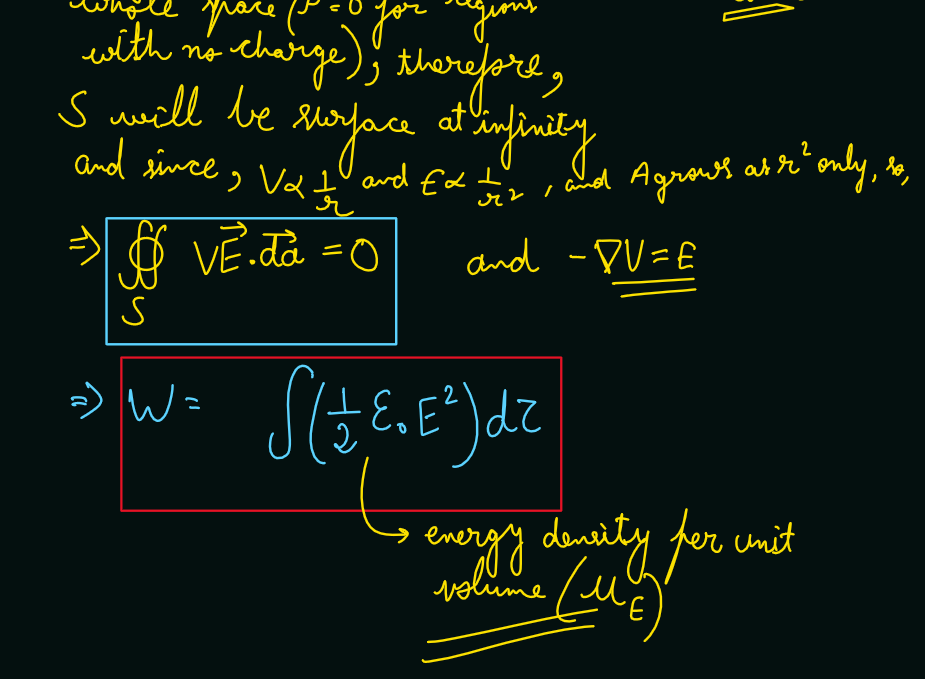 whole space (ρ = 0 for regions
with no charge), therefore,
S will be surface at infinity
and since, V∝ 1/r and E∝ 1/r², and A grows as r² only, so,
⇒ ∯_S VE⃗.da⃗ = 0 and -∇V = E
⇒ W = ∫(1/2 ε₀E²)dτ
energy density per unit
volume (u_E)